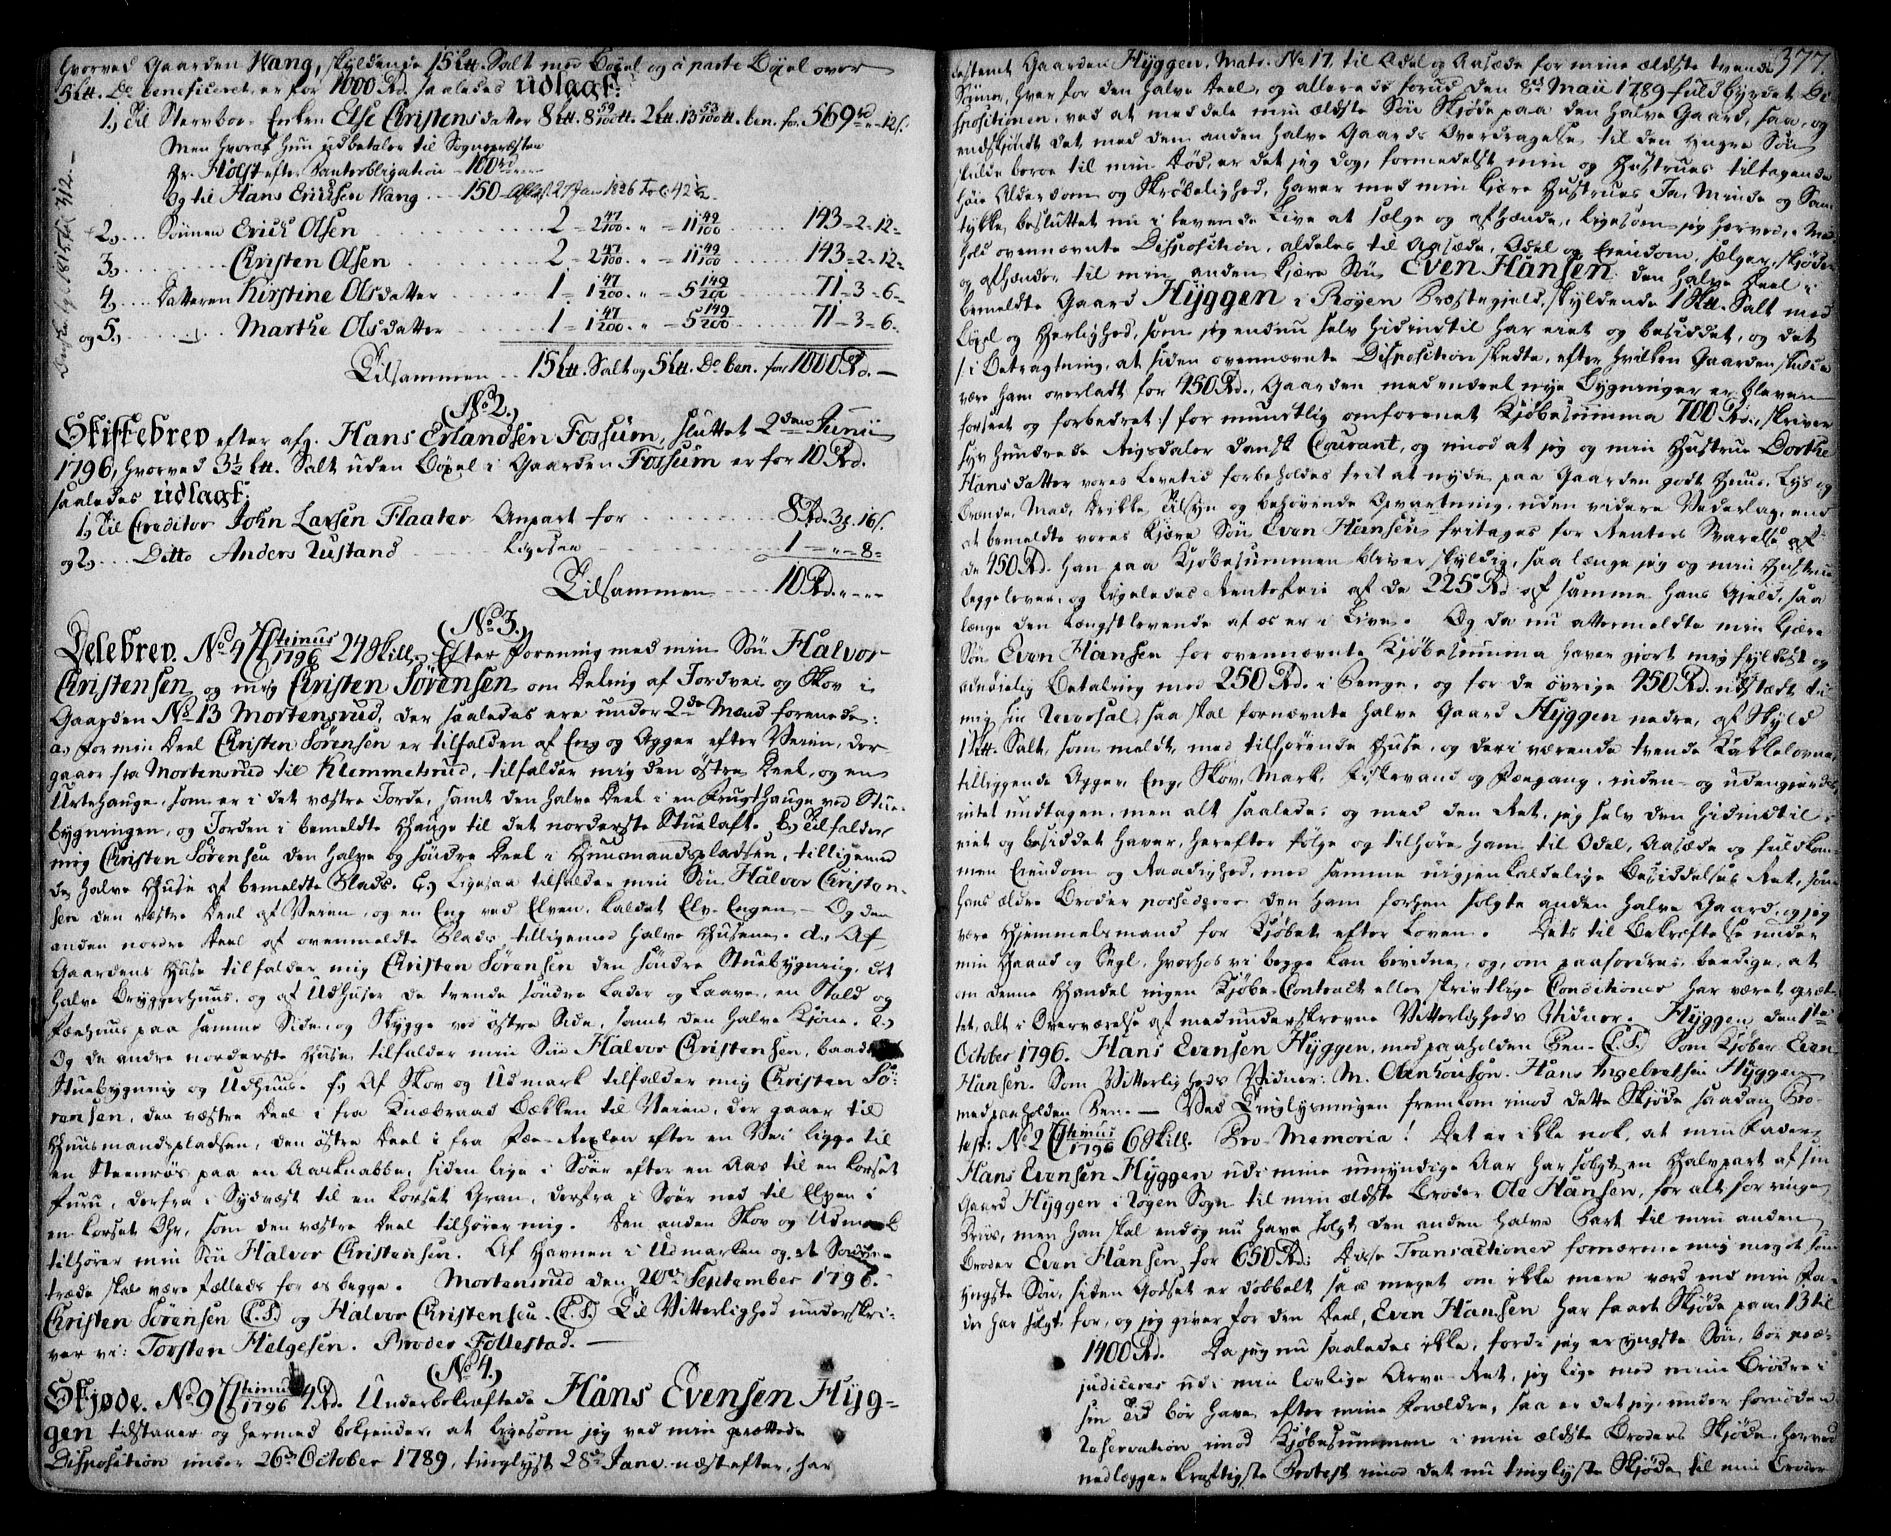 hvorved Gaarden Wang, skyldende 15 L℔. Salt med Bøxel og à parte Bøxel over
5 L℔. Do beneficeret, er for 1000 Rd. saaledes udlagt:
1.) Til Stervboe Enken Else Christensdatter 8 L℔. 8 59/100 ℔. 2 L℔. 13 53/100 ℔. ben. for 569 rd = " = 12 s.
Men hvoraf hun udbetaler til Sognepræsten
Hr. Holst efter Panteobligation 100 rd
Og til Hans Erichsen Wang 150 Aflæst 27 Jan 1826 Fol. 42
2.) Sönnen Erich Olsen 2 = 2 47/100 " = 11 49/100 143 = 2 = 12 =
3.) Christen Olsen 2 = 2 47/100 " = 11 49/100 143 = 2 = 12 =
4.) Datteren Kirstine Olsdatter 1 = 1 47/200 " = 5 149/200 71 = 3 = 6 =
og 5.) Marthe Olsdatter 1 = 1 47/200 " = 5 149/200 71 = 3 = 6.
Tilsammen 15 L℔. Salt og 5 L℔. Do ben. for 1000 Rd. —
(No 2.)
Skiftebrev efter afg. Hans Erlandsen Fossum, sluttet 2den Junii
1796, hvorved 3½ L℔. Salt uden Bøxel i Gaarden Fossum er for 10 Rd.
saaledes udlagt:
1.) Til Creditor John Larsen Flaater Anpart for 8 Rd. 3 ƺ. 16 s.
og 2.) Ditto Anders Rustand Ligesaa 1 = " = 8 =
Tilsammen 10 Rd. " = "
(No 3.)
Delebrev. No 4 7timus/1796 24 Skill. Efter Forening med min Sön Halvor
Christensen og mig Christen Sörensen om Deling af Jordvei og Skov i
Gaarden No 13 Mortensrud, der saaledes ere under 2de Mænd forenede:
a.) for min Deel Christen Sörensen er tilfalden af Eng og Agger efter Veien, der
gaaer fra Mortensrud til Klemmetsrud, tilfalder mig den östre Deel, og en
Urtehauge, som er i det væstre Jorde, samt den halve Deel i en Frugthauge ved Stue-
bygningen, og Jorden i bemeldte Hauge til det norderste Stuelaft. b.) Tilfalder
mig Christen Sörensen den halve og söndre Deel i Huusmandspladsen, tilligemed
de halve Huse af bemeldte Plads. c.) Ligesaa tilfalder min Sön Halvor Christen-
sen den væstre Deel af Veien, og en Eng ved Elven, kaldet Elv-Engen — Og den
anden nordre Deel af ovenmeldte Plads tilligemed halve Husene. d.) Af
Gaardens Huse tilfalder mig Christen Sörensen den söndre Stuebygning, det
halve Bryggerhuus, og af Udhuser de tvende söndre Lader og Laave, en Stald og
Fæehuus paa samme Side, og Skygge ved östre Side, samt den halve Kjöne. e.)
Og de andre norderste Huse tilfalder min Sön Halvor Christensen, baade
Stuebygning og Udhuus. f.) Af Skov og Udmark tilfalder mig Christen Sö-
rensen, den væstre Deel i fra Knæbraad Bækken til Veien, der gaaer til
Huusmandspladsen, den östre Deel i fra Fæe-Rexlen efter en Vei ligge til
en Steenrös paa en Aasknabbe, siden lige i Söer efter en Aas til en korset
Furu, derfra i Sydvæst til en korset Gran, derfra i Söer ned til Elven i
en korset Ohr, som den væstre Deel tilhører mig. Den anden Skov og Udmark
tilhører min Sön Halvor Christensen. Af Havnen i Udmarken og
træde skal være Fælleds for os begge. Mortensrud den 20de September 1796.
Christen Sörensen (L.S.) og Halvor Christensen. (L.S.) Til Vitterlighed underskri-
ver vi: Torsten Helgesen. Broder Follestad. —
(No 4.)
Skjøde. No 9 7timus/1796 4 Rd. Underbekræftede Hans Evensen Hyg-
gen tilstaaer og hermed bekjender, at ligesom jeg ved min oprettede
Disposition under 26de October 1789, tinglyst 28de Janv. næstefter, har
377.
bestemt Gaarden Hyggen, Matr. No 17, til Odel og Aasæde for mine ældste tvende
Sönner, hver for den halve Deel, og allerede forud den 8de Maii 1789 fuldbyrdet Di-
spositionen, ved at meddele min ældste Sön Skjøde paa den halve Gaard, saa, og
endskjöndt det med den anden halve Gaards Overdragelse til den yngre Sön
skulde beroe til min Död, er det jeg dog, formedelst min og Hustrues tiltagende
höie Alderdom og Skröbelighed, haver med min kjære Hustrues Ja, Minde og Sam-
tykke, besluttet nu i levende Live at sælge og afhænde, ligesom jeg herved, i Med-
hold ovennævnte Disposition, aldeles til Aasæde, Odel og Eiendom, sælger, skjöder
og afhænder til min anden kjære Sön Even Hansen den halve Deel i
bemeldte Gaard Hyggen i Røyen Præstegjeld, skyldende 1 Sk℔. Salt med
Bøxel og Herlighed, som jeg endnu selv hidindtil har eiet og besiddet, og det
/: i Betragtning, at siden ovennævnte Disposition skedte, efter hvilken Gaarden skulde
være ham overladt for 450 Rd., Gaarden med endeel nye Bygninger er bleven
forseet og forbedret :/ for mundtlig omforenet Kjøbesumma 700 Rd., skriver
syv hundrede Rigsdaler dansk Courant, og imod at jeg og min Hustrue Dorthe
Hansdatter vores Levetid forbeholdes frit at nyde paa Gaarden godt Huus, Lys og
Brænde, Mad, Drikke, Tilsyn og behøvende Opvartning, uden videre Vederlag, end
at bemeldte vores kjære Sön Even Hansen fritages for Renters Svarelse af
de 450 Rd. han paa Kjøbesummen bliver skyldig, saa længe jeg og min Hustrue
begge lever, og ligeledes Rentefrie af de 225 Rd. af samme hans Gjeld, saa
længe den Længstlevende af os er i Live. Og da nu attermeldte min kjære
Sön Even Hansen for ovennævnte Kjøbesumma haver gjort mig fyldest og
vedröielig Betaling med 250 Rd. i Penge, og for de øvrige 450 Rd. udstædt til
mig sin Reversal, saa skal fornævnte halve Gaard Hyggen nedre, af Skyld
1 Sk℔. Salt, som meldt, med tilhørende Huse, og deri værende tvende Kakkelovne,
tilliggende Agger, Eng, Skov, Mark, Fiskevand og Fægang, inden- og udengierdes,
intet undtagen, men alt saaledes og med den Ret, jeg selv den hidindtil
eiet og besiddet haver, herefter følge og tilhøre ham til Odel, Aasæde og fuldkom-
men Eiendom og Raadighed, med samme uigjenkaldelige Besiddelses Ret, som
hans ældre Broder possederer den ham forhen solgte anden halve Gaard, og jeg
være Hjemmelsmand for Kjøbet efter Loven. Dets til Bekræftelse under
min Haand og Segl, hvorhos vi begge kan bevidne, og, om paafordres, beedige, at
om denne Handel ingen Kjøbe-Contract eller skriftlige Conditioner har været opret-
tet, alt i Overværelse af medunderskrevne Vitterligheds Vidner. Hyggen, den 1ste
October 1796. Hans Evensen Hyggen, med paaholden Pen. (L.S.) Som Kjøber Even
Hansen. Som Vitterligheds Vidner: M. Hans Ingebretsen Hyggen
med paaholden Pen. — Ved Tinglysningen fremkom imod dette Skjøde saadan Pro-
test: No 2 7timus/1796 6 Skill. Pro Memoria! Det er ikke nok, at min Fader
Hans Evensen Hyggen udi mine umyndige Aar har solgt en Halvpart af sin
Gaard Hyggen i Røyen Sogn til min ældste Broder Ole Hansen, for alt for ringe
Priis, men han skal endog nu have solgt den anden halve Part til min anden
Broder Even Hansen, for 650 Rd. Disse Transactioner fornærme mig meget som
yngste Sön, siden Godset er dobbelt saa meget om ikke mere værd end min Fa-
der har solgt for, og jeg giver for den Deel, Even Hansen har faaet Skjøde paa, 13 til
1400 Rd. Da jeg nu saaledes ikke, fordi jeg er yngste Sön, bör præ-
judiceres udi min lovlige Arve-Ret, jeg lige med mine Brødre i
sin Tid bör have efter mine Forældre, saa er det jeg, under fornøden
Reservation imod Kjøbesummen i min ældste Broders Skjøde, herved
nedlægger kraftigste Protest imod det nu tinglyste Skjøde til min Broder